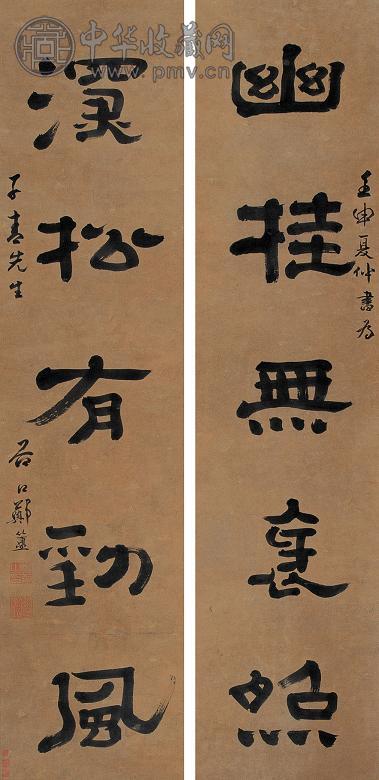 中华收藏网
www.pmv.cn
幽桂無衰
壬申夏仲書為
松有勁風
子青先生
谷口鄭簠